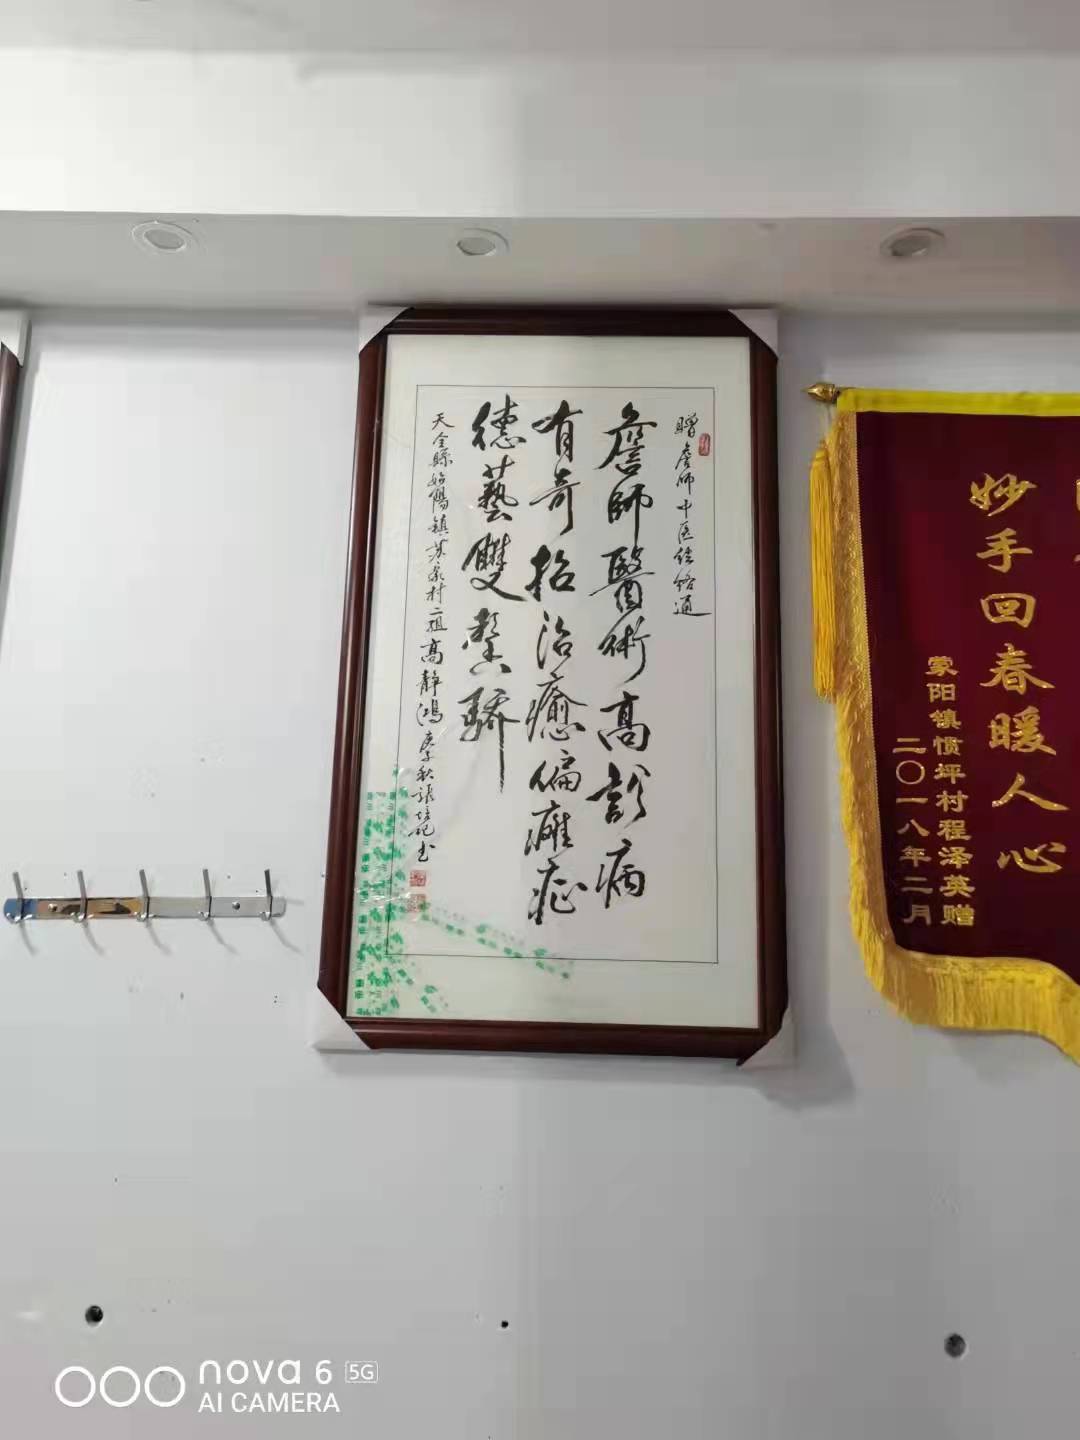 赠詹师中医经络通
詹師醫術高診病
有奇招治癒偏癱症
德藝雙馨驕
天全縣始陽鎮苏家村二組高静鴻
庚子秋張培
书
妙手回春暖人心
蒙阳镇惯坪村程泽英赠
二〇一八年二月
nova 6 5G
AI CAMERA